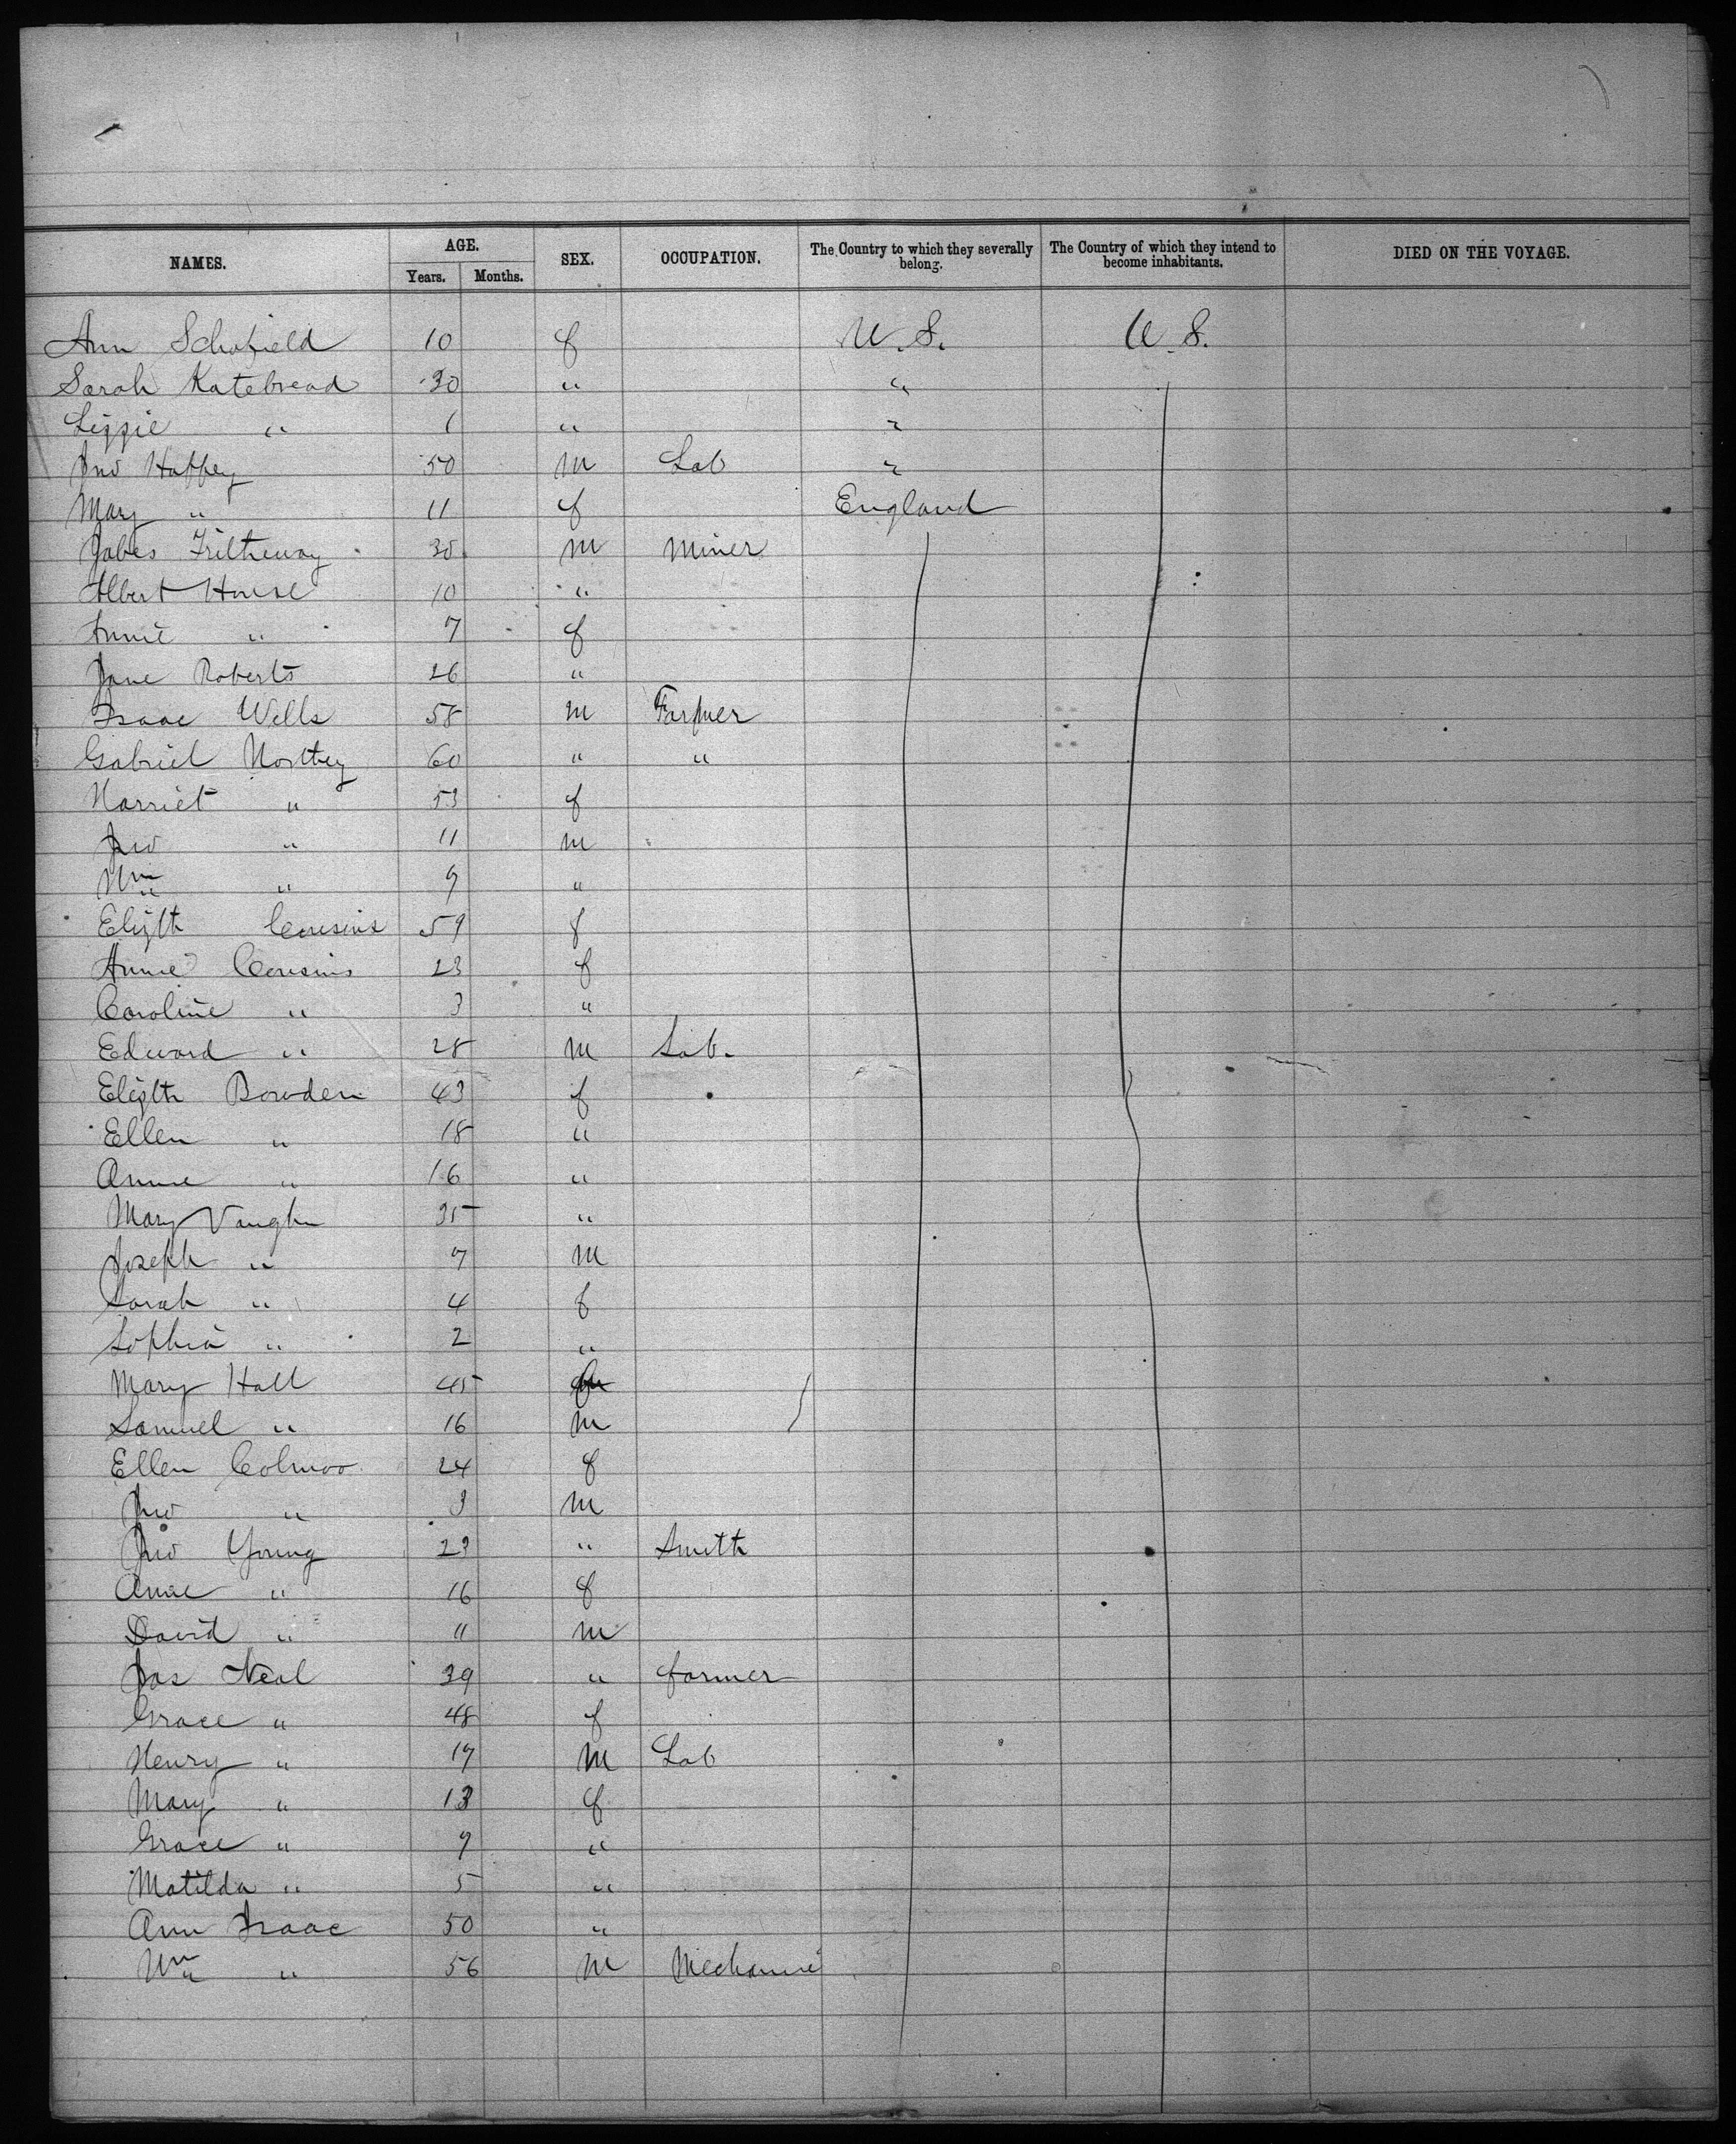 NAMES. AGE. SEX. OCCUPATION. The Country to which they severally belong. The Country of which they intend to become inhabitants. DIED ON THE VOYAGE.
Years. Months.
Ann Schofield 10 f U.S. U.S.
Sarah Katebread 30 " "
Lizzie " 1 " "
Jno Haffey 50 m Lab "
Mary " 11 f England
Jabes Trltheway 30 m Miner
Albert House 10 "
Annie " 7 f
Jane Roberts 26 "
Isaac Wells 58 m Farmer
Gabriel Northey 60 " "
Harriet " 53 f
Jno " 11 m
Wm " 9 "
Elizth Cousins 59 f
Annie Cousins 23 f
Caroline " 3 "
Edward " 28 m Lab.
Elizth Bowden 43 f
Ellen " 18 "
Annie " 16 "
Mary Vaughn 35 "
Joseph " 7 m
Sarah " 4 f
Sophia " 2 "
Mary Hall 45 f
Samuel " 16 m
Ellen 24 f
Jno " 3 m
Jno Young 23 " Smith
Anne " 16 f
David " 11 m
Jas Neal 39 " farmer
Grace " 48 f
Henry " 17 m Lab
Mary " 13 f
Grace " 9 "
Matilda " 5 "
Ann Isaac 50 "
Wm " 56 m Mechanic